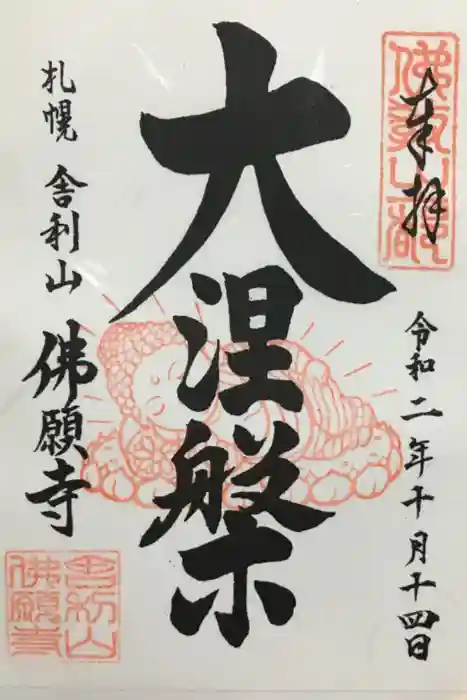 奉拝
令和二年十月十四日
大涅槃
札幌 舎利山 佛願寺
舎利山
佛願寺